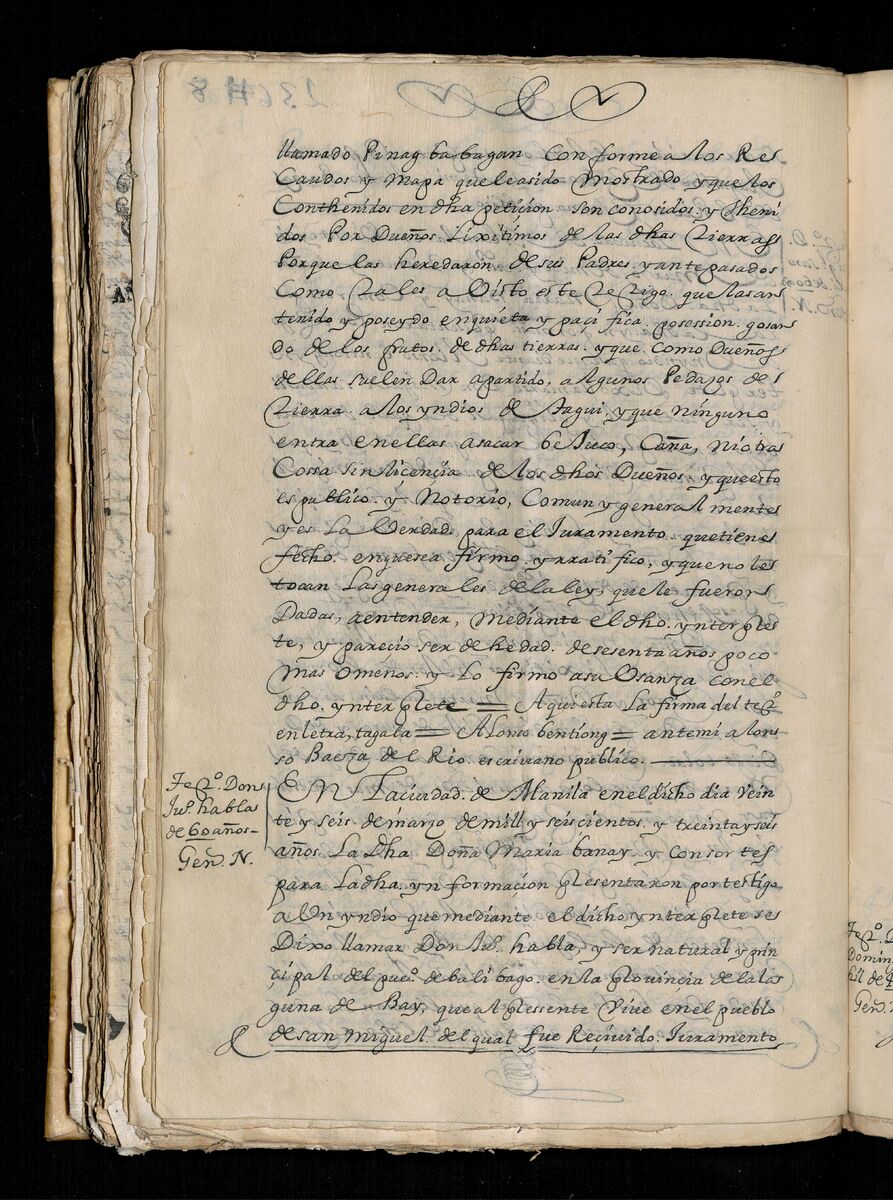 llamado Pinagbabagan Conforme a los Re
Caudos y Mapa que le a sido Mostrado y que los
Conthenidos en dha peticion son conosidos y theni
dos Por Dueños Lixitimos de las dhas tierras
Porque las heredaron de sus Padres y antepasados
Como tales a Visto este tetigo que las an
tenido y poseydo en quieta y paçifica posession gosan
do de los frutos de dhas tierras y que como Dueños
dellas suelen Dar a partido, a algunos Pedaços de
tierra a los yndios de taguí, y que ninguno
entra en ellas a sacar bejuco, Caña, ni otras
Cossa sin licençia de los dhos Dueños y que esto
es publico y Notorio, Comun y generalmente
y es La Verdad para el Iuramento que tiene
fecho en que sea firmo y rratifico, y que no le
tocan Las generales de la ley, que le fueron
Dadas, a entender, Mediante el dho ynterple
te, y parecio ser de hedad de sesenta años poco
mas o menos y Lo firmo a su Usanza con el
dho ynterplete = Aqui esta La firma del teº
en letra, tagala = Alonso bentiong = ante mi alon
so Baeza del Rio escrivano publico
Teº Don
Juº habla
de 60 años
Genˡ N.
EN La ciudad de Manila en el dicho dia Vein
te y seis de março de mill y seiscientos y treinta y seis
años La Dha Doña Maria banay y Consortes
para La dha ynformaçion plesentaron por testigo
a Un yndio que mediante el dicho ynterplete se
Dixo llamar Don Juº habla, y ser natural y prin
çipal del pueº de balibago en la provinçia de la la
guna de Bay, que al plessente Vive en el pueblo
de san Miguel del qual fue Reçiuido Iuramento